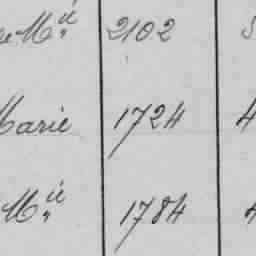 M.ie 2102
Marie 1724 4
M.ie 1784 4